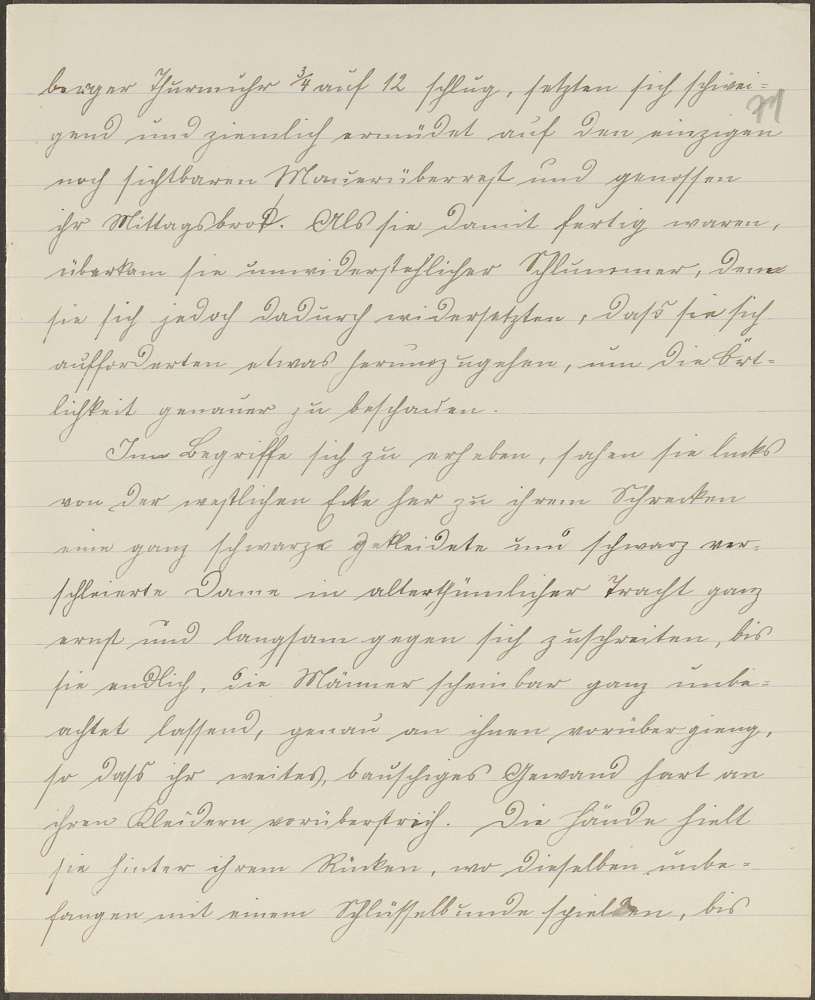 berger Thurmuhr ¾ auf 12 schlug, setzten sich schwei-
gend und ziemlich ermüdet auf den einzigen
noch sichtbaren Mauerüberrest und genossen
ihr Mittagsbrot. Als sie damit fertig waren,
überkam sie unwiderstehlicher Schlummer, dem
sie sich jedoch dadurch widersetzten, daß sie sich
aufforderten etwas herumzugehen, um die Ört-
lichkeit genauer zu beschauen.
Im Begriffe sich zu erheben, sahen sie links
von der westlichen Ecke her zu ihrem Schrecken
eine ganz schwarz gekleidete und schwarz ver-
schleierte Dame in alterthümlicher Tracht ganz
ernst und langsam gegen sich zuschreiten, bis
sie endlich, die Männer scheinbar ganz unbe-
achtet lassend, genau an ihnen vorübergieng,
so daß ihr weites, bauschiges Gewand hart an
ihren Kleidern vorüberstrich. Die Hände hielt
sie hinter ihrem Rücken, wo dieselben unbe-
fangen mit einem Schlüsselbunde spielten, bis